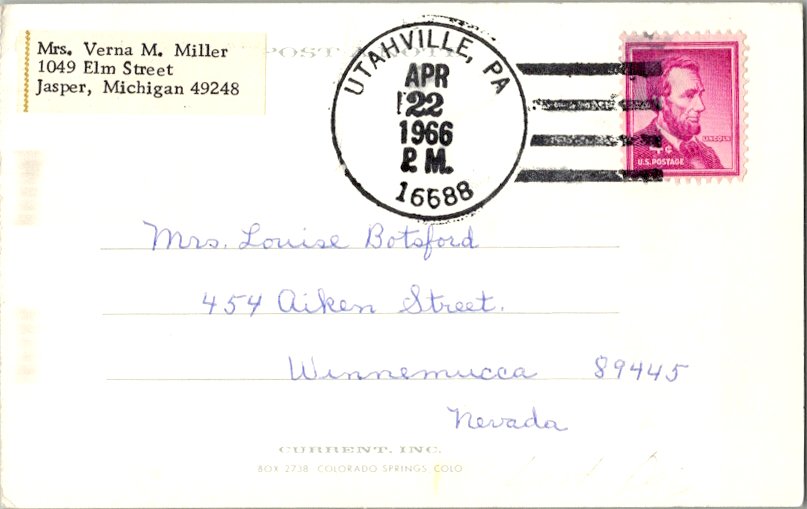 Mrs. Verna M. Miller
1049 Elm Street
Jasper, Michigan 49248
POST A NOTE
UTAHVILLE, PA
APR
22
1966
P.M.
16688
LINCOLN
4¢
U.S. POSTAGE
Mrs. Louise Botsford
454 Aiken Street.
Winnemucca 89445
Nevada
CURRENT, INC.
BOX 2738 COLORADO SPRINGS, COLO.